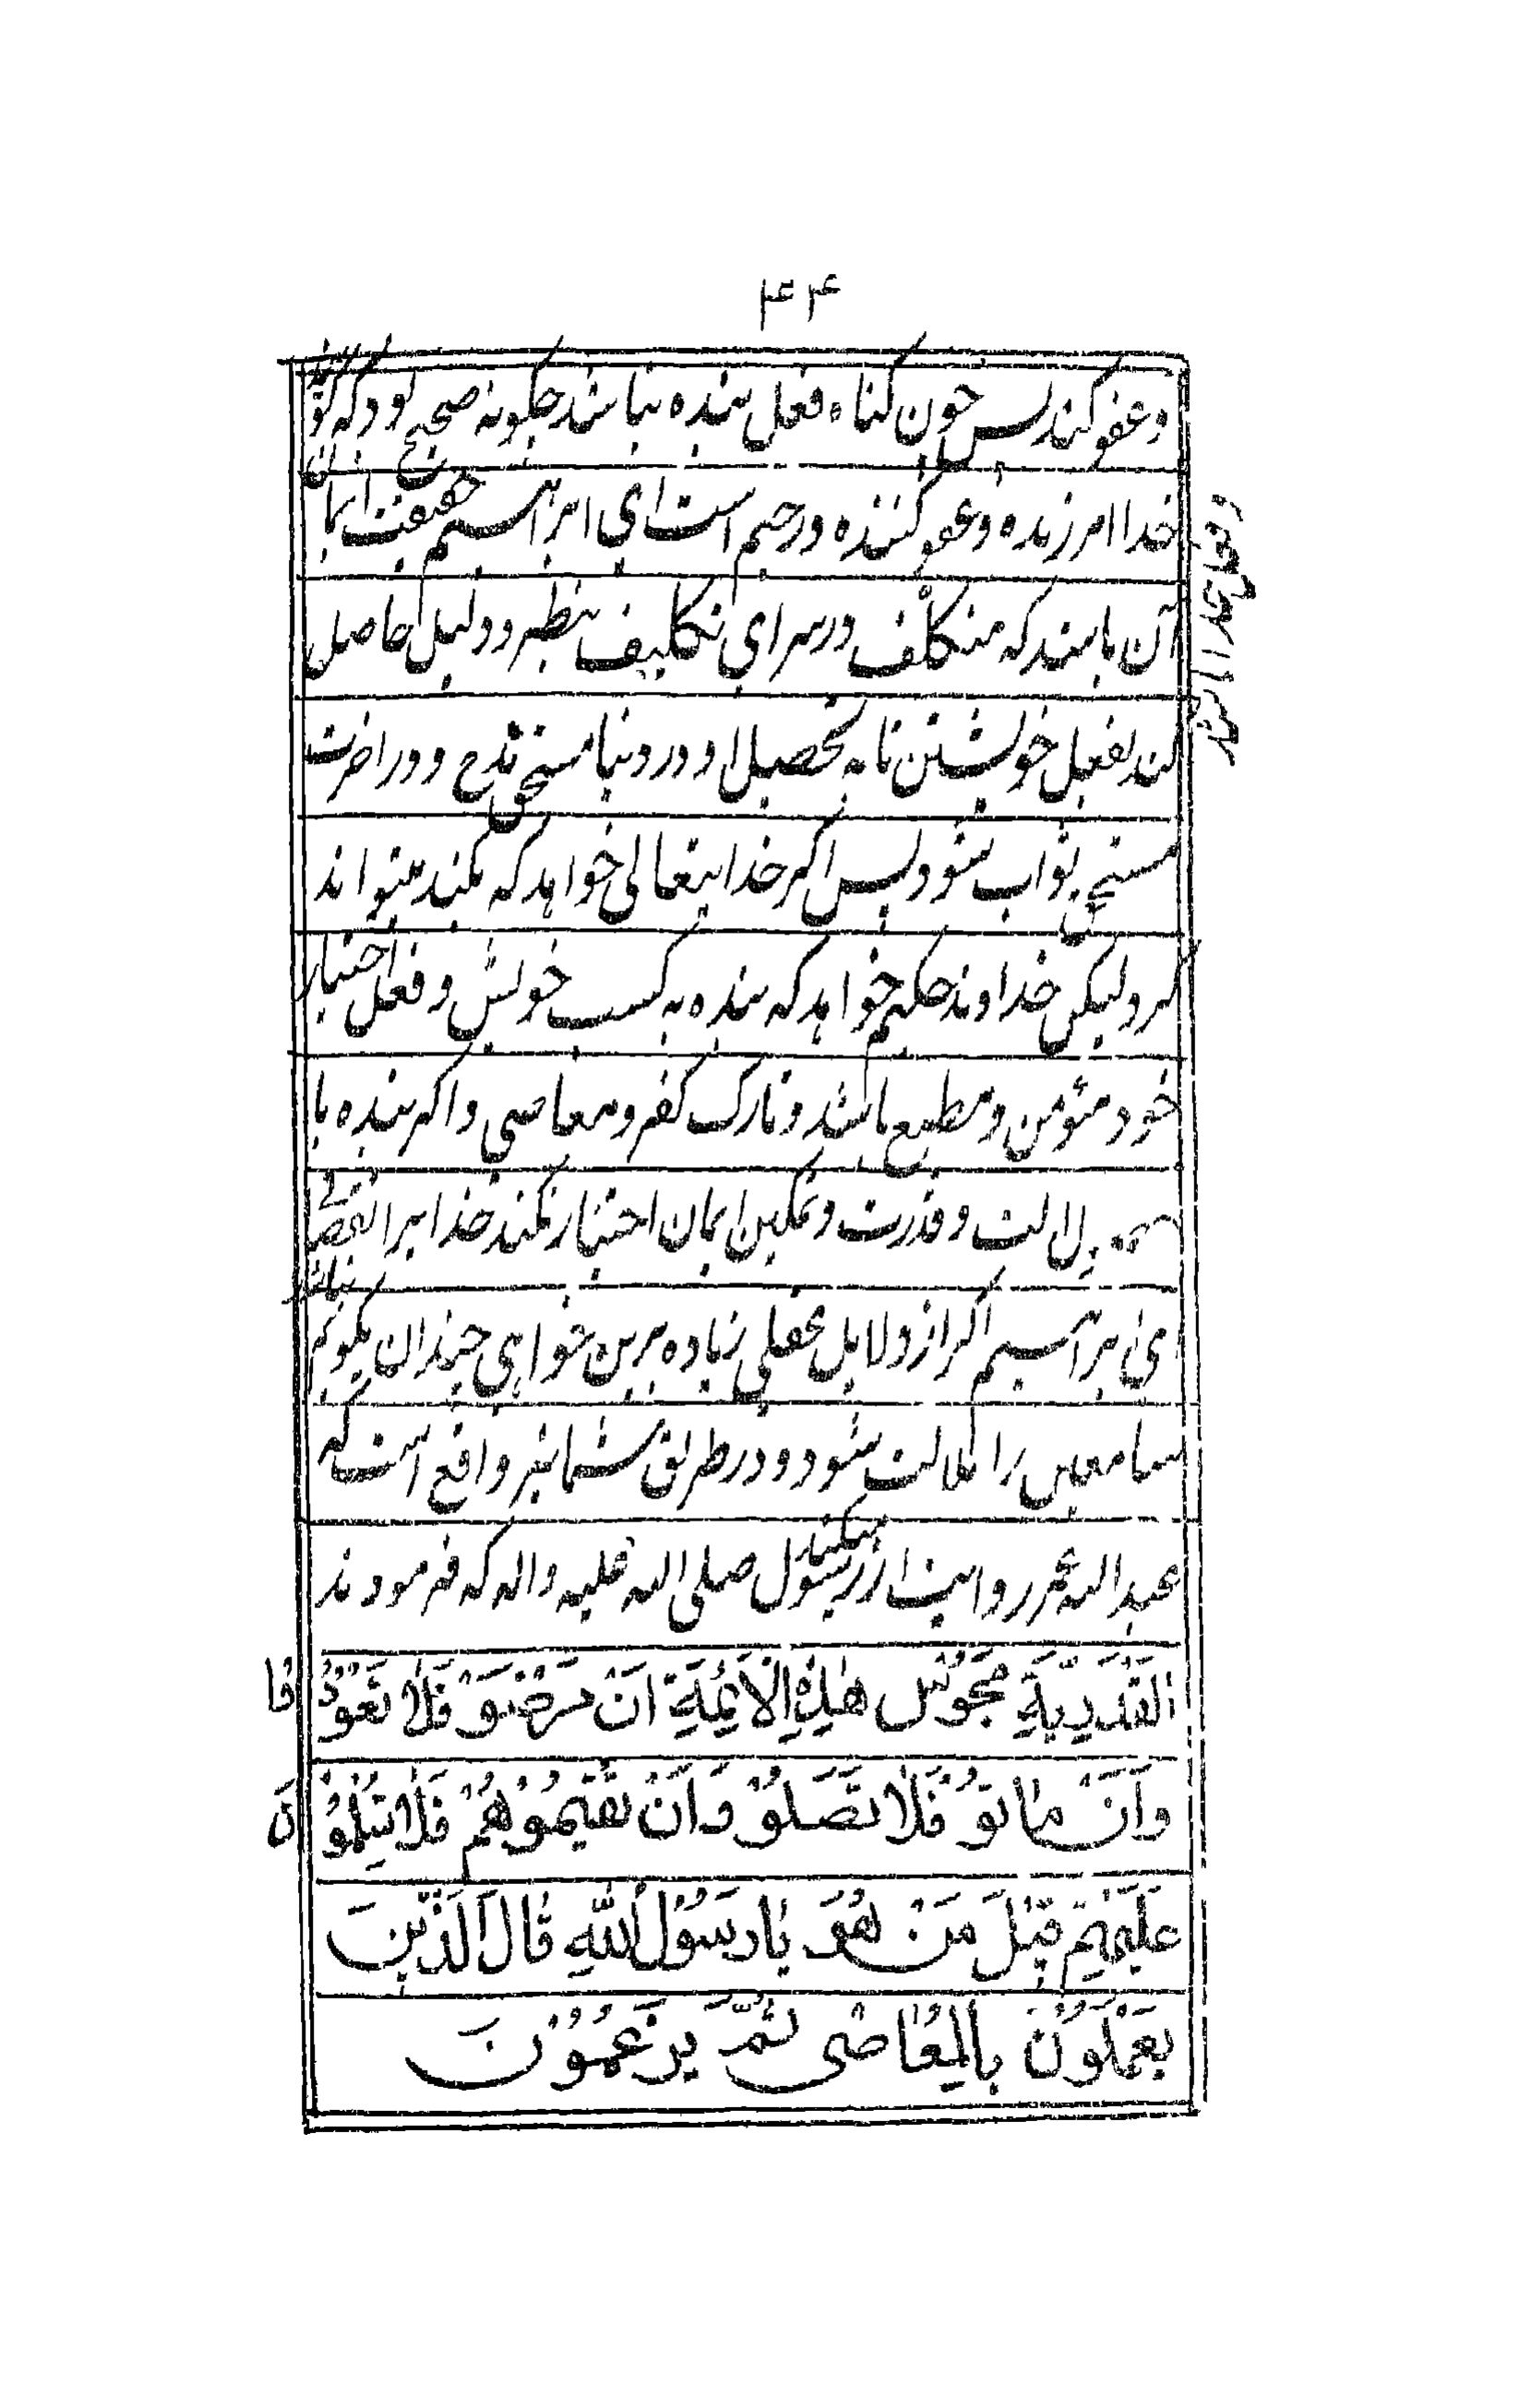 ۴۴
و عفو کند پس چون کناه فعل بنده نباشد چکونه صحیح بود که کویند
خدا امرزنده و عفو کننده و رحیم است ای ابراهیم حقیقت ایمان
آن باشد که متکلف در سرای تکلیف بنظر و دلیل حاصل
کند بفعل خویشتن تا به تحصیل او در دنیا مستحق مدح و در اخرت
مستحق ثواب شود پس اکر خدایتعالی خواهد که بکند میتواند
کرد لیکن خداوند حکیم خواهد که بنده به کسب خویش و فعل اختیار
خود مؤمن و مطیع باشد و تارک کفر و معاصی و اکر بنده با
الت و قدرت و تمکین ایمان اختیار نکند خدایرا نقصی نباشد
ای ابراهیم اکر از دلایل عقلی زیاده برین خواهی چندان بکویم
سامعین را ملالت شود و در طریق شما نیز واقع است که
عبدالله عمر روایت میکند از رسول صلی الله علیه واله که فرمودند
القَدَرِیَّةِ مَجُوسُ هٰذِهِ الْاُمَّةِ اَنْ مَرِضُو فَلا تَعُوُدُ فا
وَاَنْ مٰاتوُ فَلٰا تصَلوُ وَاَنْ لقیتمُوُهُمْ فَلٰا تسَلِّمُوُ اَن
عَلَیْهِم قیٖلَ مَنْ هُوَ یٰا رَسوُلُ اللهِ قٰالَ الَّذیٖنَ
یَعْمَلوُنَ بِالْمَعٰاصی ثُمَّ یَزعَمُوُنَ